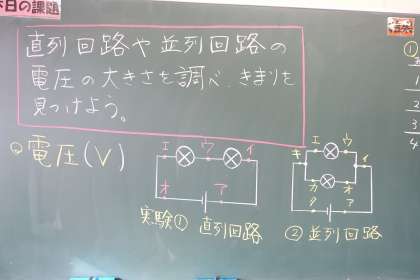 本日の課題
直列回路や並列回路の
電圧の大きさを調べ、きまりを
見つけよう。
電圧(V)
エ ウ イ
オ ア
実験① 直列回路
エ ウ
キ イ
カ オ
ク ア
② 並列回路
①
1
2
3
4